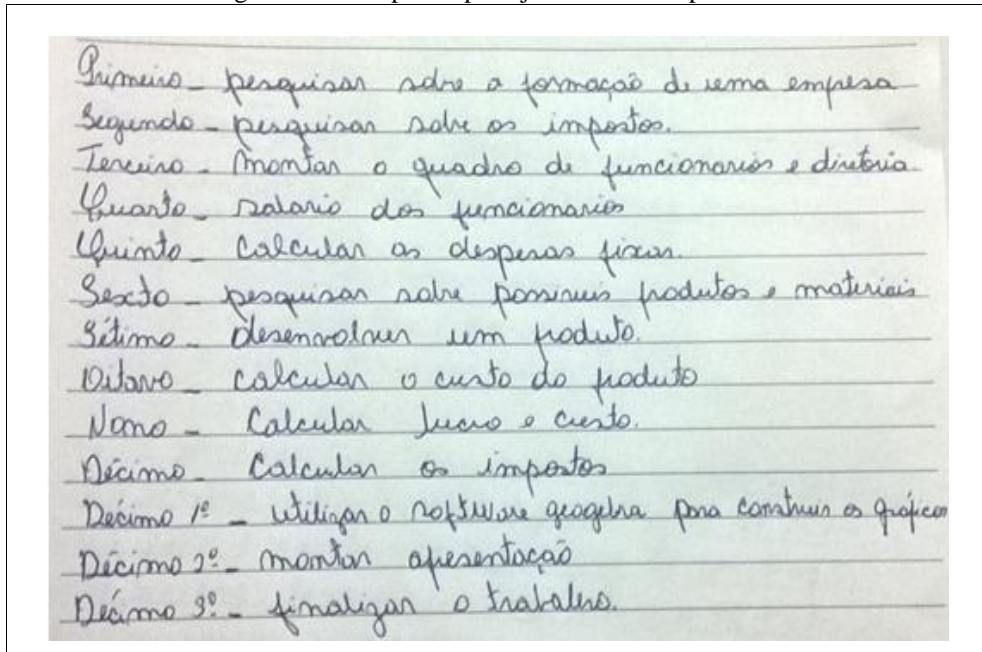 Primeiro - pesquisar sobre a formação de uma empresa
Segundo - pesquisar sobre os impostos.
Terceiro - Montar o quadro de funcionarios e diretoria.
Quarto - salario dos funcionarios
Quinto - Calcular as despesas fixas.
Sexto - pesquisar sobre possiveis produtos e materiais
Sétimo - desenvolver um produto.
Oitavo - calcular o custo do produto
Nono - Calcular lucro e custo.
Décimo - Calcular os impostos
Décimo 1º - utilizar o software geogebra para construir os gráficos
Décimo 2º - montar apresentação
Décimo 3º - finalizar o trabalho.